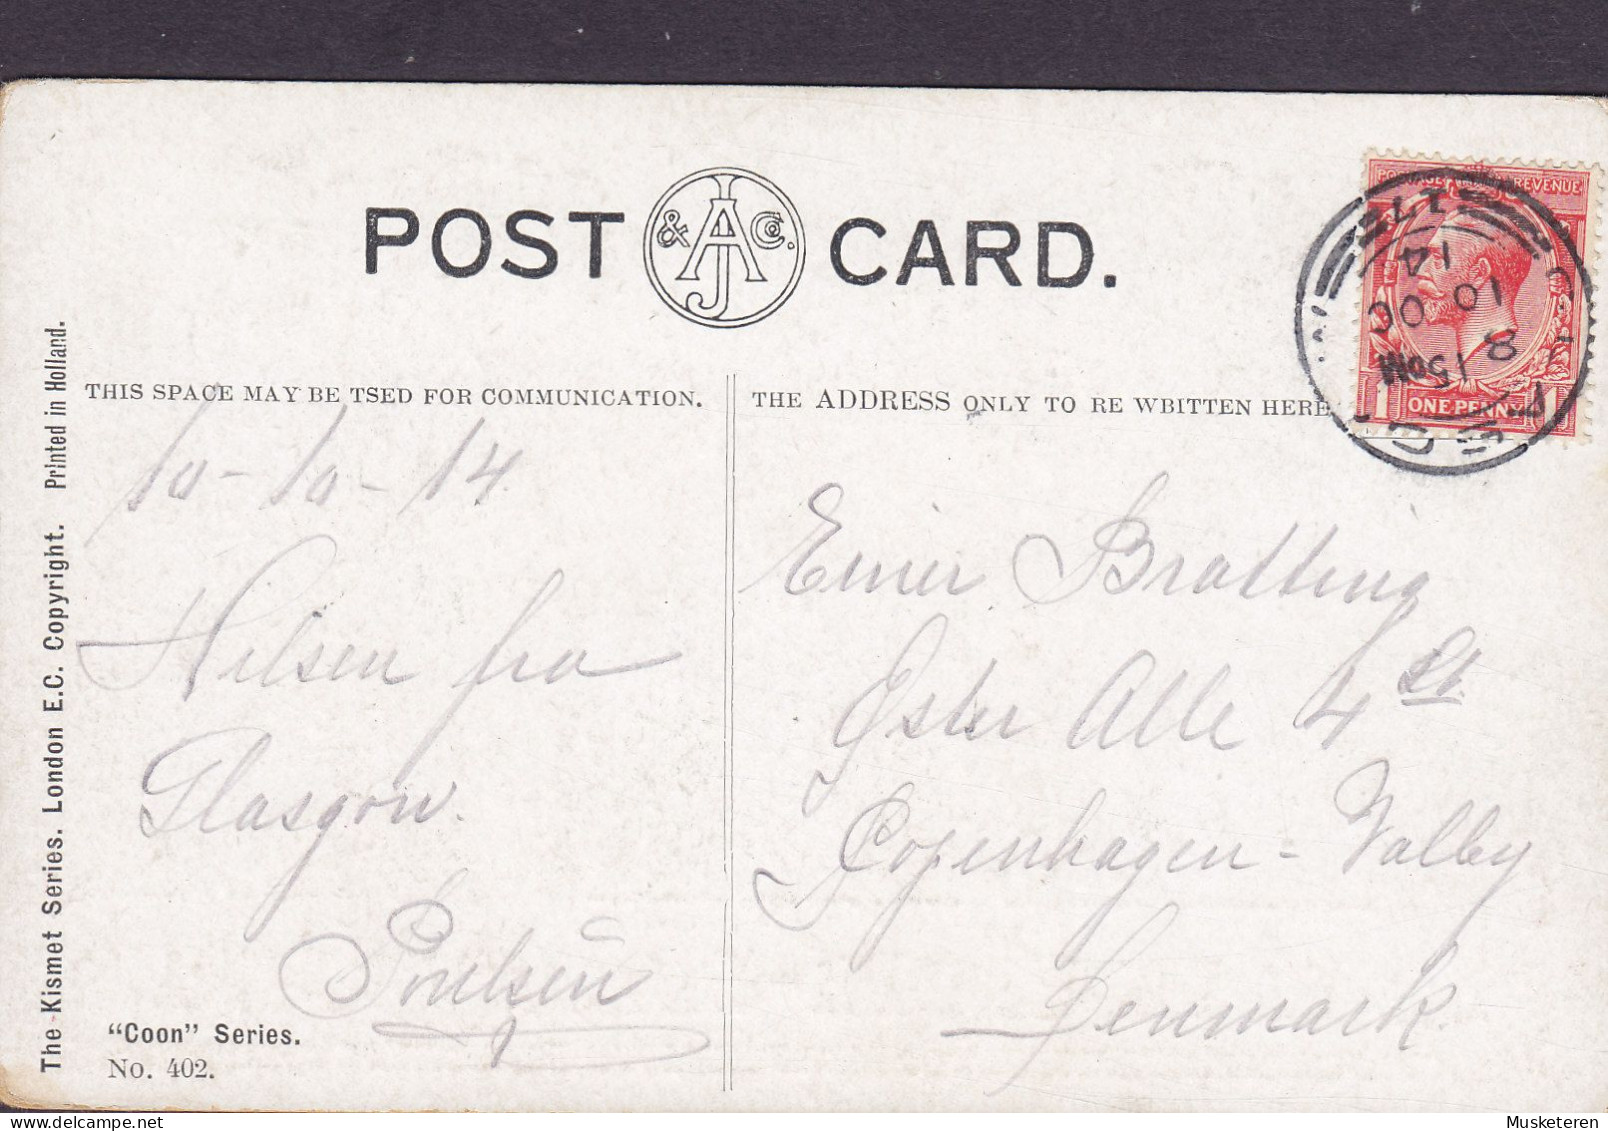 POST & AJ Co. CARD.
THIS SPACE MAY BE TSED FOR COMMUNICATION.
THE ADDRESS ONLY TO RE WBITTEN HERE
POSTAGE REVENUE
ONE PENNY
1 1
172
8 15 PM
10 OC
14
10-10-14.
Hilsen fra
Glasgow.
Poulsen
Einer Bratting
Øster Alle 4 St.
Copenhagen - Valby
Denmark.
The Kismet Series. London E.C. Copyright. Printed in Holland.
"Coon" Series.
No. 402.
Musketeren